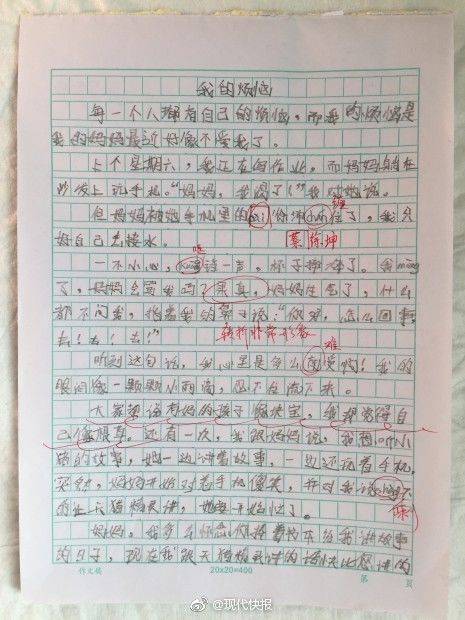 我的烦恼
每一个人都有自己的烦恼，而我的烦恼是
我的妈妈最近好像不爱我了。
上个星期六，我正在写作业，而妈妈躺在
沙发上玩手机。“妈妈，我渴了！”我对她说。
但妈妈被她手机里的 你 住了，我只
缠
好自己去接水。
蔡徐坤
一不小心， 一声，杯子摔碎了。我
了，妈妈会骂我吗？果真，妈妈生气了，什么
都不问我，指着我的鼻子说：“你呀，怎么回事，
去！去！去！”
转折非常形象
难
听到这句话，我心里是多么 受啊！我的
眼泪像一颗颗小雨滴，忍不住流下来。
大家都说有妈的孩子像块宝，我却觉得自
己像根草。还有一次，我跟妈妈说，我想听小
猪的故事，她一边讲着故事，一边还玩着手机，
突然，妈妈开始对着手机傻笑，并对我说
天猫精灵讲，
妈妈，我多么怀念你捧着书本给我讲故事
的日子，现在我跟天猫精灵讲的话快比您讲的
作文稿
20x20=400
第 页
@现代快报